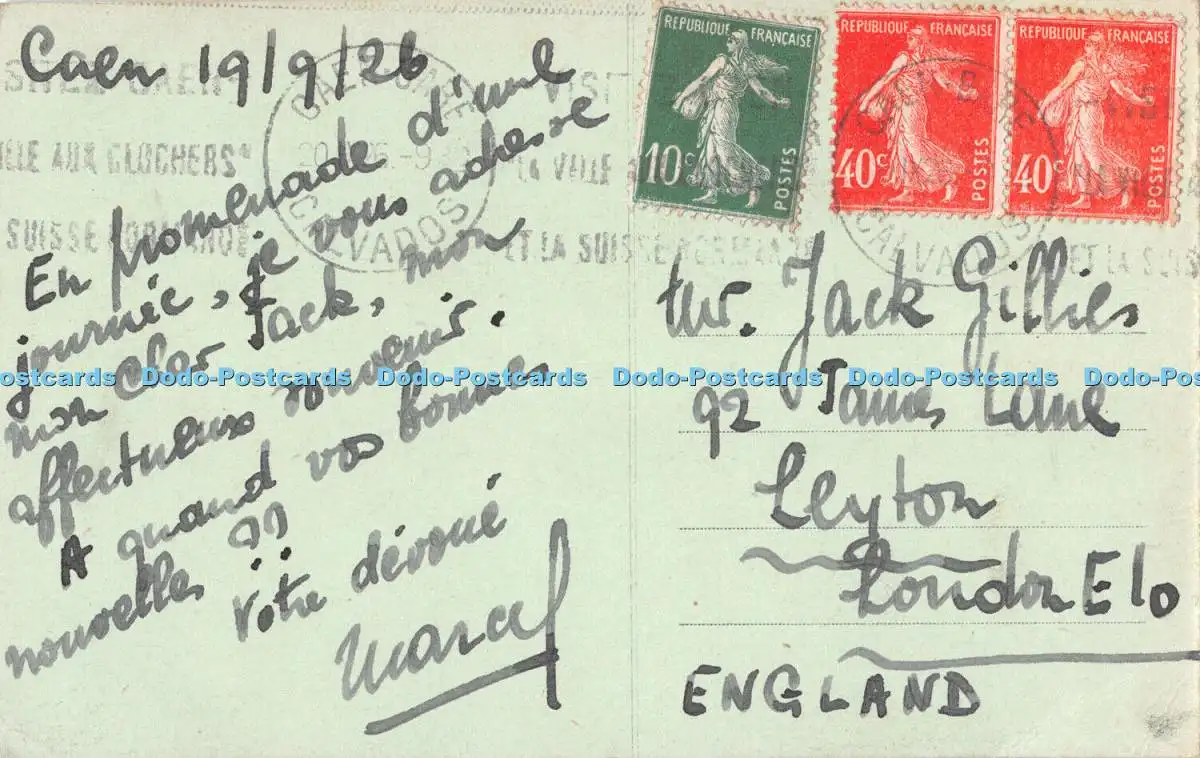 Caen 19/9/26
En promenade d'une
journée, je vous adresse
mon Cher Jack, mon
affectueux souvenir.
A quand vos bonnes
nouvelles ??
Votre dévoué
Marcel
RÉPUBLIQUE FRANÇAISE
10c POSTES
RÉPUBLIQUE FRANÇAISE
40c POSTES
RÉPUBLIQUE FRANÇAISE
40c POSTES
VILLE AUX CLOCHERS"
SUISSE NORMANDE
CALVADOS
LA VILLE
ET LA SUISSE NORMANDE
CALVADOS
ET LA SUISSE
Mr. Jack Gillies
92 James Lane
Leyton
London E10
ENGLAND
Dodo-Postcards Dodo-Postcards Dodo-Postcards Dodo-Postcards Dodo-Postcards Dodo-Postcards